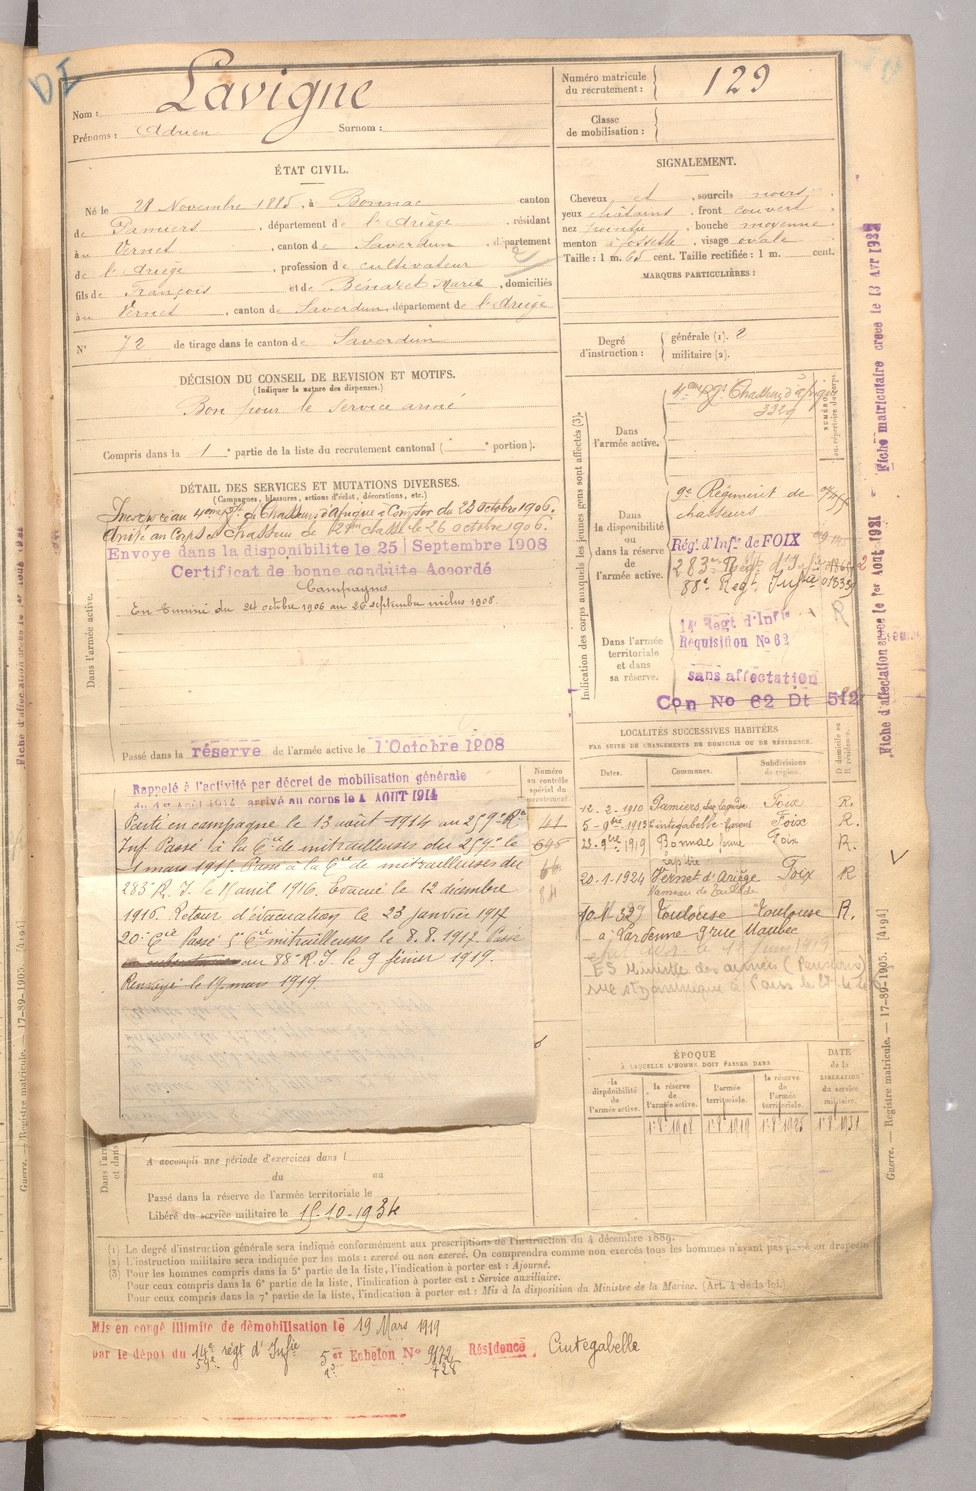 Nom : Lavigne
Prénoms : Adrien Surnom :
Numéro matricule du recrutement : 129
Classe de mobilisation :
ÉTAT CIVIL.
Né le 28 Novembre 1885, à Bonnac canton
de Pamiers, département de l'Ariège, résidant
à Vernet, canton de Saverdun, département
de l'Ariège, profession de cultivateur
fils de François et de Bénazet Marie, domiciliés
à Vernet, canton de Saverdun, département de l'Ariège
N° 72 de tirage dans le canton de Saverdun
SIGNALEMENT.
Cheveux et , sourcils noirs
yeux châtains , front couvert
nez pointu , bouche moyenne
menton à fossette , visage ovale
Taille : 1 m. 65 cent. Taille rectifiée : 1 m. cent.
MARQUES PARTICULIÈRES :
Degré d'instruction : générale (1). 2
militaire (2).
DÉCISION DU CONSEIL DE REVISION ET MOTIFS.
(Indiquer la nature des dispenses.)
Bon pour le service armé
Compris dans la 1 partie de la liste du recrutement cantonal ( portion).
DÉTAIL DES SERVICES ET MUTATIONS DIVERSES.
(Campagnes, blessures, actions d'éclat, décorations, etc.)
Incorporé au 4ème Rgt de Chasseurs d'Afrique à Compter du 23 octobre 1906.
Arrivé au Corps et chasseur de 2me classe le 26 octobre 1906.
Envoye dans la disponibilite le 25 Septembre 1908
Certificat de bonne conduite Accordé
Campagnes
En Tunisie du 24 octobre 1906 au 26 septembre inclus 1908.
Dans l'armée active.
Passé dans la réserve de l'armée active le 1 Octobre 1908
Rappelé à l'activité par décret de mobilisation générale
du 1er Août 1914 arrivé au corps le 4 AOUT 1914
Parti en campagne le 13 août 1914 au 259e R.
Inf. Passé à la Cie de mitrailleuses du 259e le
1 mars 1915. Passé à la Cie de mitrailleuses du
283e R.I. le 1 avril 1916. Evacué le 12 décembre
1916. Retour d'évacuation le 23 janvier 1917
20e Cie Passé 5e Cie mitrailleuses le 8.8.1917. Passé
au 88e R.I. le 9 février 1919.
Renvoyé le 19 mars 1919.
Numéro au contrôle spécial du recrutement
41
646
66
84
Indication des corps auxquels les jeunes gens sont affectés (3).
Dans l'armée active.
4me Rgt Chasseurs d'Afrique
3329
NUMÉROS au répertoire du corps.
Dans la disponibilité ou dans la réserve de l'armée active.
9e Régiment de chasseurs
Régt d'Infie de FOIX
283me Régt d'Infie
88e Regt Infie 013339
Dans l'armée territoriale et dans sa réserve.
14e Regt d'Infie R
Requisition No 62
sans affectation
Con No 62 Dt 512
LOCALITÉS SUCCESSIVES HABITÉES
PAR SUITE DE CHANGEMENTS DE DOMICILE OU DE RÉSIDENCE.
Dates. Communes. Subdivisions de région. D domicile ou R résidence.
12-2-1910 Pamiers Foix R.
5-9bre-1913 Cintegabelle Foix R.
23-9bre-1919 Bonnac Foix R.
20-1-1924 Vernet d'Ariège Foix R
Toulouse Toulouse R.
à Lardenne 9 rue Maubec
ÉPOQUE
À LAQUELLE L'HOMME DOIT PASSER DANS
la disponibilité de l'armée active. la réserve de l'armée active. l'armée territoriale. la réserve de l'armée territoriale. DATE de la LIBÉRATION du service militaire.
A accompli une période d'exercices dans l
du au
Passé dans la réserve de l'armée territoriale le
Libéré du service militaire le 15-10-1934
(1) Le degré d'instruction générale sera indiqué conformément aux prescriptions de l'instruction du 4 décembre 1889.
(2) L'instruction militaire sera indiquée par les mots : exercé ou non exercé. On comprendra comme non exercés tous les hommes n'ayant pas passé au drapeau.
(3) Pour les hommes compris dans la 5e partie de la liste, l'indication à porter est : Ajourné.
Pour ceux compris dans la 6e partie de la liste, l'indication à porter est : Service auxiliaire.
Pour ceux compris dans la 7e partie de la liste, l'indication à porter est : Mis à la disposition du Ministre de la Marine. (Art. 4 de la loi.)
Mis en congé illimité de démobilisation le 19 Mars 1919
par le dépot du 14e régt d'Infie 5e Echelon No 9172 Résidence. Cintegabelle
59e 728
Fiche matriculaire créée le 13 Avr 1922
Fiche d'affectation créée le 1er Aout 1921
Guerre. — Registre matricule. — 17-89-1905. [4194]